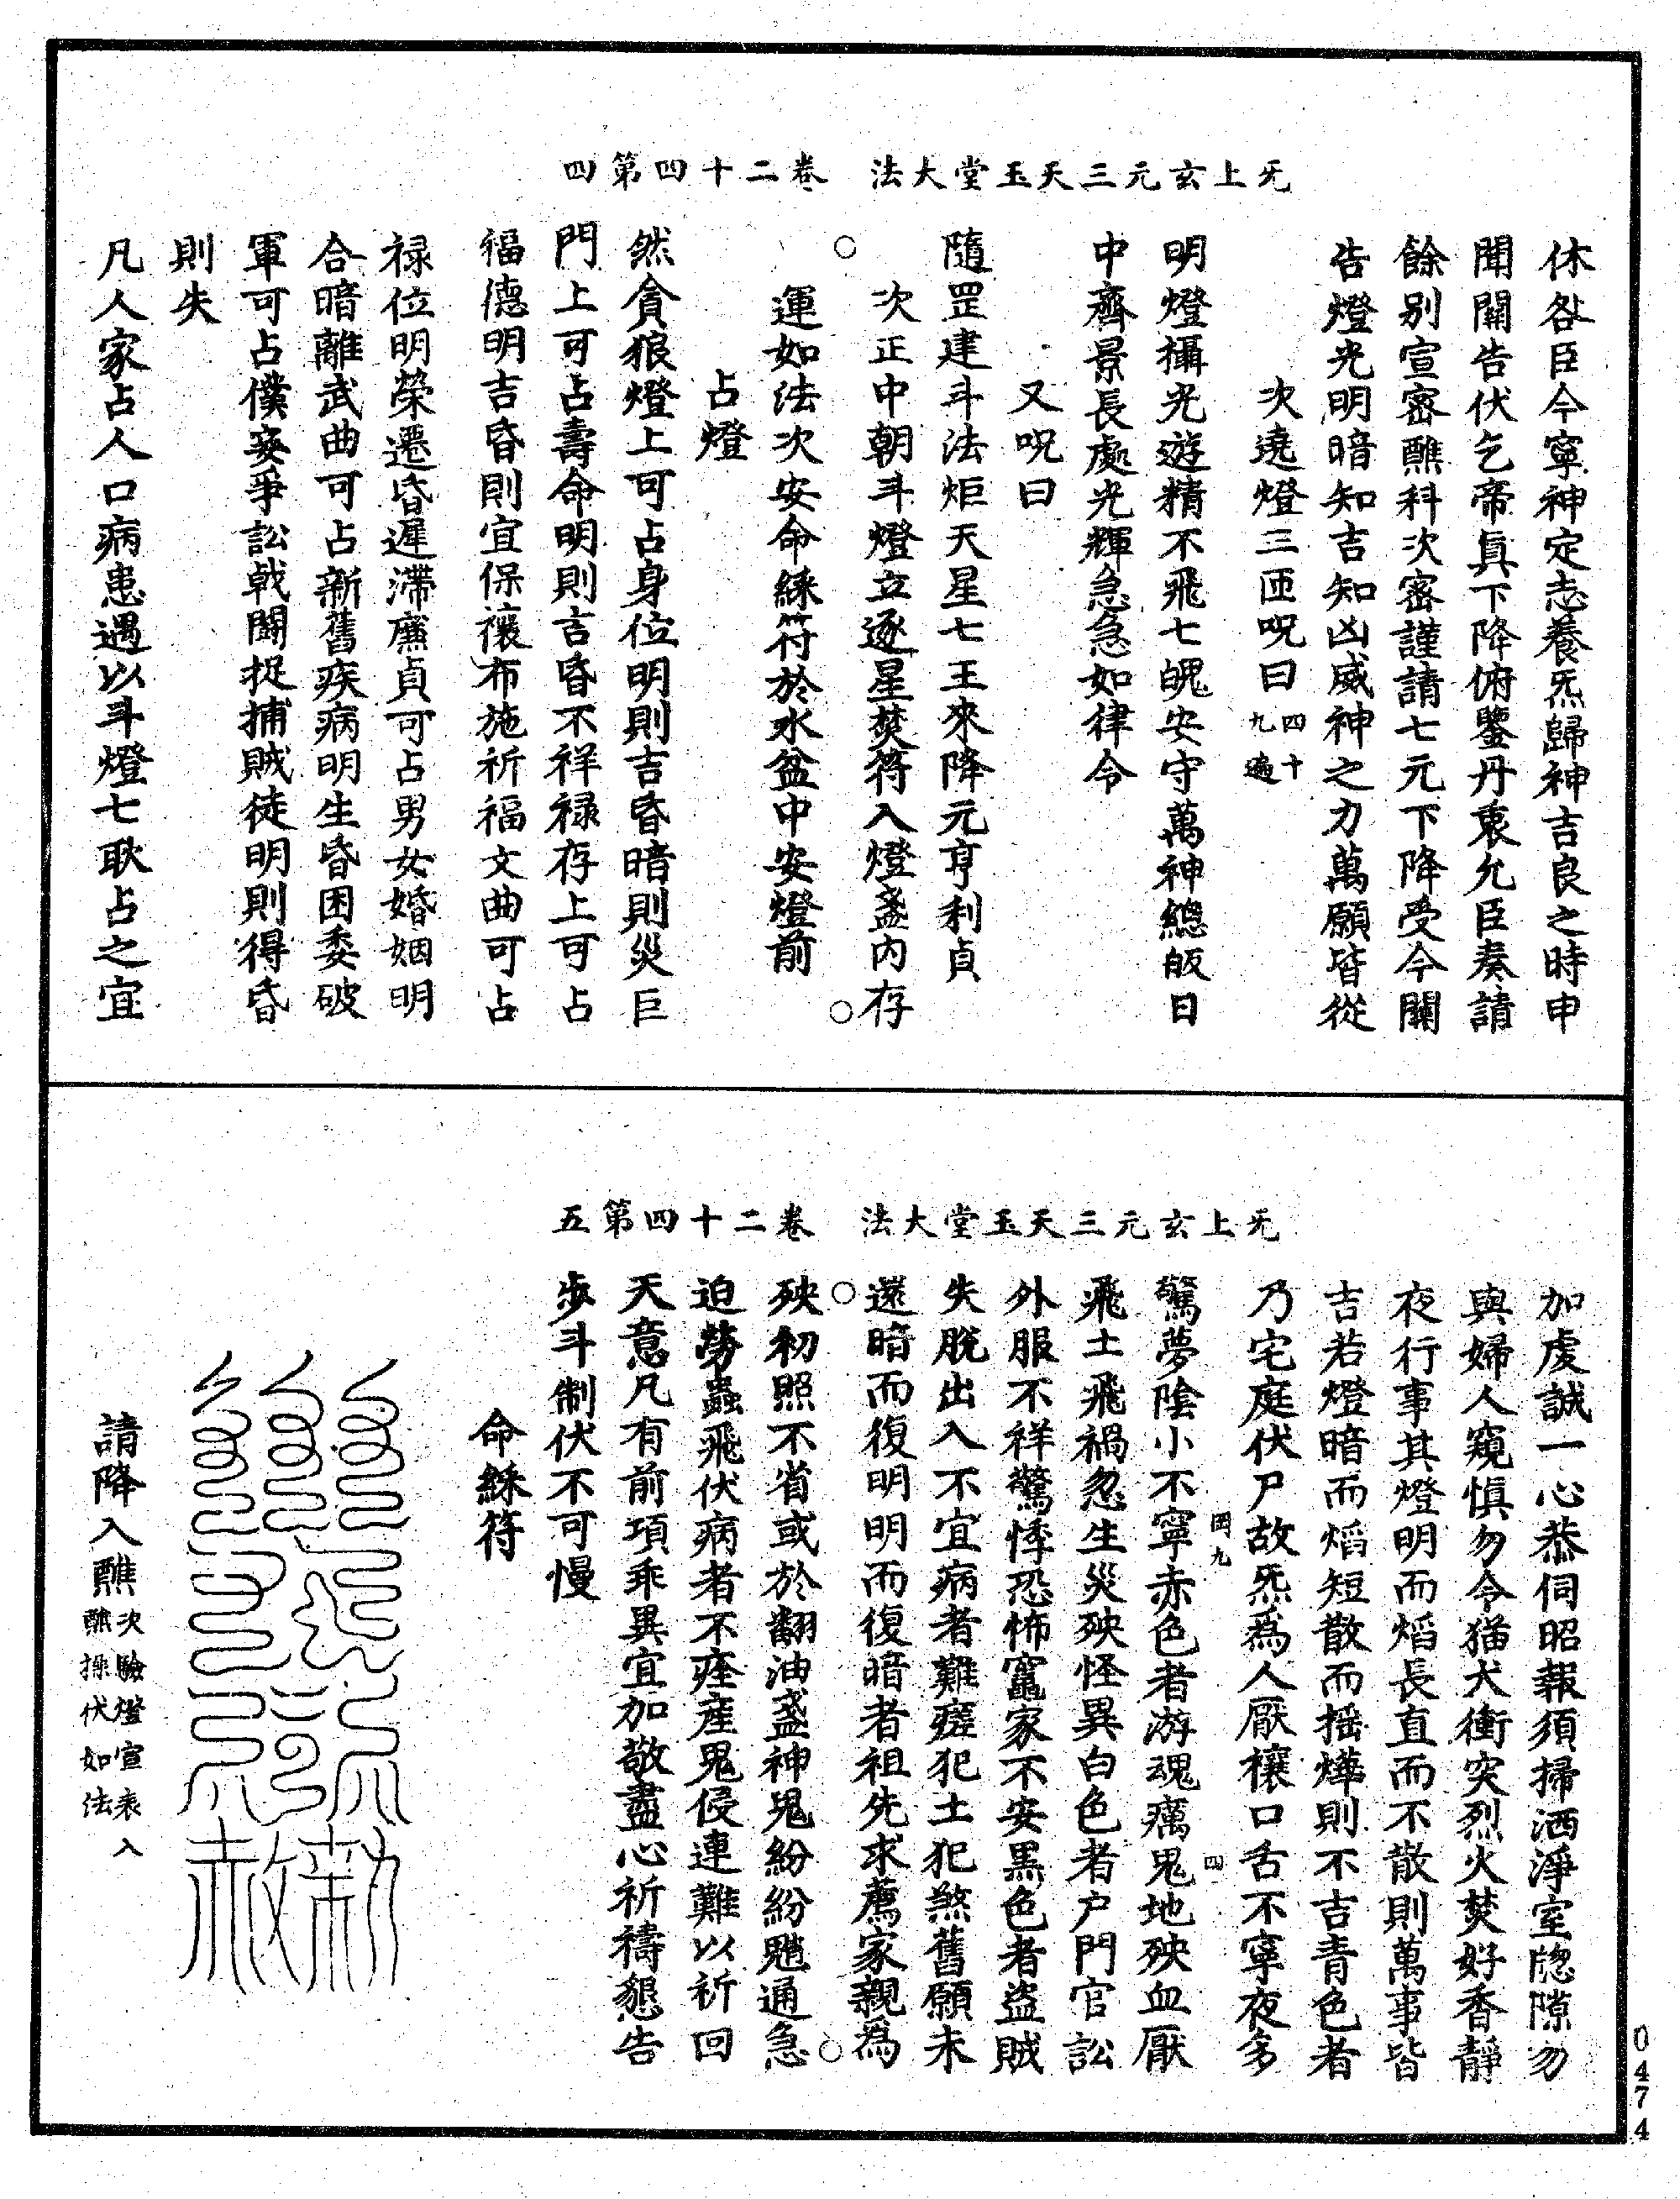 无上玄元三天玉堂大法　卷二十四第四
休咎臣今寧神定志養炁歸神吉良之時申
聞關告伏乞帝眞下降俯鑒丹衷允臣奏請
餘别宣密醮科次密謹請七元下降受今關
告燈光明暗知吉知凶威神之力萬願皆從
次遶燈三匝呪曰四十九遍
明燈攝光遊精不飛七魄安守萬神總皈日
中齊景長處光輝急急如律令
又呪曰
隨罡建斗法炬天星七王來降元亨利貞
次正中朝斗燈立逐星焚符入燈盞内存
運如法次安命綵符於水盆中安燈前
占燈
然貪狼燈上可占身位明則吉昏暗則災巨
門上可占壽命明則言昏不祥禄存上可占
福德明吉昏則宜保禳布施祈福文曲可占
禄位明榮遷昏遲滯廉貞可占男女婚姻明
合暗離武曲可占新舊疾病明生昏困委破
軍可占僕妾爭訟戟鬭捉捕賊徒明則得昏
則失
凡人家占人口病患遇以斗燈七耿占之宜
无上玄元三天玉堂大法　卷二十四第五
加虔誠一心恭伺昭報須掃洒淨室牕隙勿
與婦人窺愼勿令猫犬衝突烈火焚好香靜
夜行事其燈明而熖長直而不散則萬事皆
吉若燈暗而熖短散而摇燁則不吉青色者
乃宅庭伏尸故炁爲人厭禳口舌不寧夜多
驚夢陰小不寧赤色者游魂癘鬼地殃血厭
岡九
四
飛土飛禍忽生災殃怪異白色者户門官訟
外服不祥驚悸恐怖竈家不安黒色者盗賊
失脫出入不宜病者難瘥犯土犯煞舊願未
還暗而復明明而復暗者祖先求薦家親爲
殃初照不省或於翻油盞神鬼紛紛魈通急
迫勞蟲飛伏病者不痊産鬼侵連難以祈回
天意凡有前項乖異宜加敬盡心祈禱懇告
步斗制伏不可慢
命綵符
敕
赦
請降入醮次驗燈宣表入醮操伏如法
0474